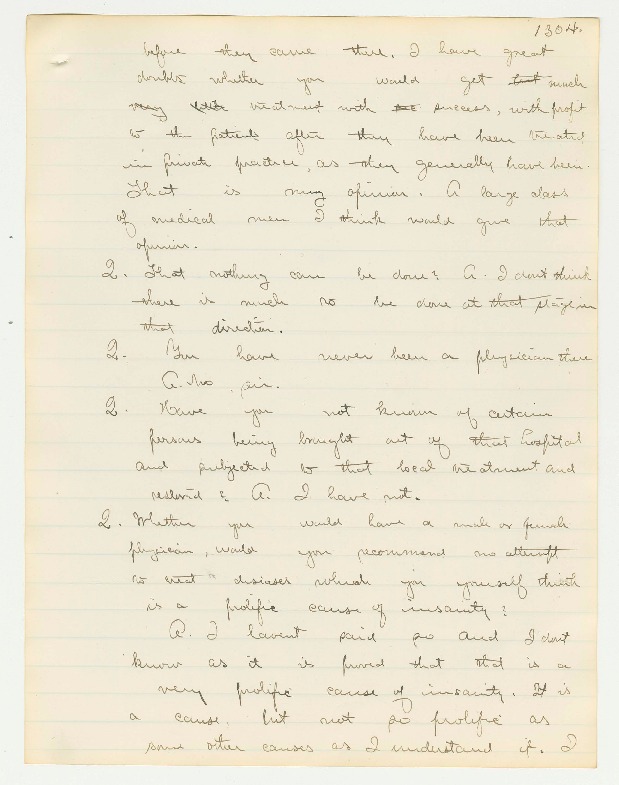 1304.
before they came there. I have great
doubts whether you would get much
treatment with success, with profit
to the patients after they have been treated
in private practice, as they generally have been.
That is my opinion. A large class
of medical men I think would give that
opinion.
Q. That nothing can be done? A. I dont think
there is much to be done at that stage in
that direction.
Q. You have never been a physician there
A. No sir.
Q. Have you not known of certain
persons being brought out of that hospital
and subjected to that local treatment and
restored? A. I have not.
Q. Whether you would have a male or female
physician, would you recommend no attempt
to treat diseases which you yourself think
is a prolific cause of insanity?
A. I havent said so and I dont
know as it is proved that that is a
very prolific cause of insanity. It is
a cause, but not so prolific as
some other causes as I understand it. I